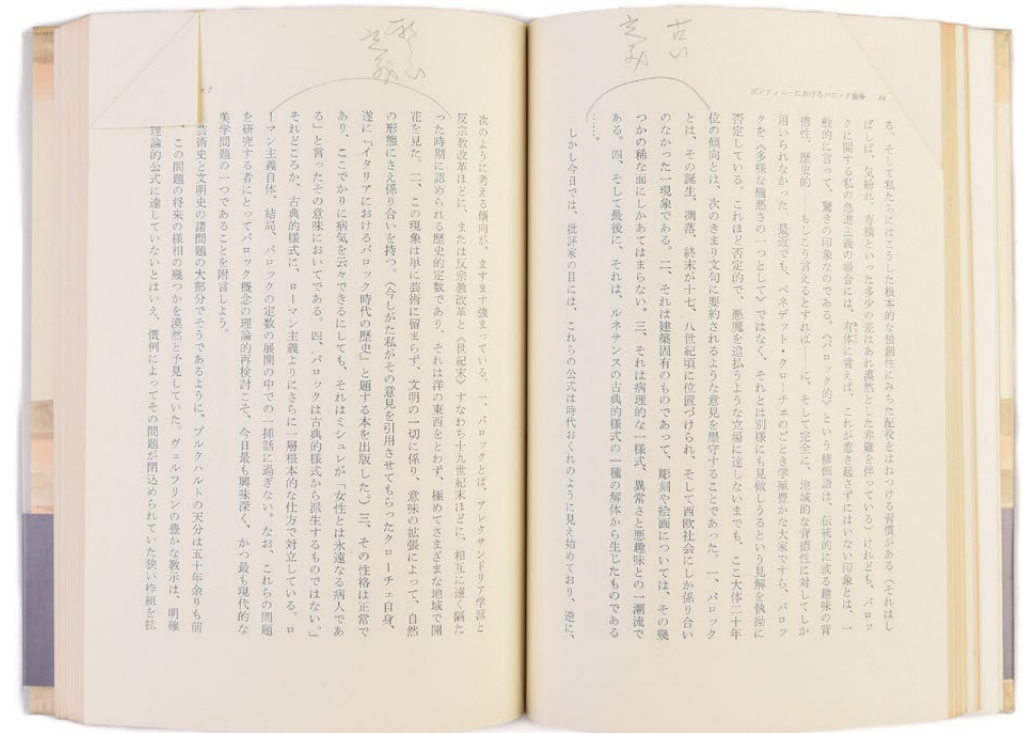 古い
定義
ボンティニーにおけるバロック論争 66
る。そして私たちにはこうした根本的な独創性にみちた配役をはねつける習慣がある(それはし
ばしば、気紛れ、専横といった多少の差はあれ漠然とした非難を伴っている)けれども、バロッ
クに関する私の急進主義の場合には、有体に言えば、これが惹き起さずにはいない印象とは、一
般的に言って、驚きの印象なのである。《バロック的》という修飾語は、伝統的に或る趣味の背
徳性、歴史的——もしこう言えるとすれば——に、そして完全に、地域的な背徳性に対してしか
用いられなかった。最近でも、ベネデット・クローチェのごとき学殖豊かな大家ですら、バロッ
クを《多様な醜悪さの一つとして》ではなく、それとは別様にも見做しうるという見解を執拗に
否定している。これほど否定的で、悪魔を追払うような立場に達しないまでも、ここ大体二十年
位の傾向とは、次のきまり文句に要約されるような意見を墨守することであった。一、バロック
とは、その誕生、凋落、終末が十七、八世紀頃に位置づけられ、そして西欧社会にしか係り合い
のなかった一現象である。二、それは建築固有のものであって、彫刻や絵画については、その幾
つかの稀な面にしかあてはまらない。三、それは病理的な一様式、異常さと悪趣味との一潮流で
ある。四、そして最後に、それは、ルネサンスの古典的様式の一種の解体から生じたものである
……。
しかし今日では、批評家の目には、これらの公式は時代おくれのように見え始めており、逆に、
新しい
定義
次のように考える傾向が、ますます強まっている。一、バロックとは、アレクサンドリア学派と
反宗教改革ほどに、または反宗教改革と《世紀末》すなわち十九世紀末ほどに、相互に遠く隔た
った時期に認められる歴史的定数であり、それは洋の東西をとわず、極めてさまざまな地域で開
花を見た。二、この現象は単に芸術に留まらず、文明の一切に係り、意味の拡張によって、自然
の形態にさえ係り合いを持つ。(今しがた私がその意見を引用させてもらったクローチェ自身、
遂に『イタリアにおけるバロック時代の歴史』と題する本を出版した。)三、その性格は正常で
あり、ここでかりに病気を云々できるにしても、それはミシュレが「女性とは永遠なる病人であ
る」と言ったその意味においてである。四、バロックは古典的様式から派生するものではない。
それどころか、古典的様式に、ローマン主義よりにさらに一層根本的な仕方で対立している。ロ
ーマン主義自体、結局、バロックの定数の展開の中での一挿話に過ぎない。なお、これらの問題
を研究する者にとってバロック概念の理論的再検討こそ、今日最も興味深く、かつ最も現代的な
美学問題の一つであることを附言しよう。
芸術史と文明史の諸問題の大部分でそうであるように、ブルクハルトの天分は五十年余りも前
に、この問題の将来の様相の幾つかを漠然と予見していた。ヴェルフリンの豊かな教示は、明確
な理論的公式に達していないとはいえ、慣例によってその問題が閉込められていた狭い枠組を拡